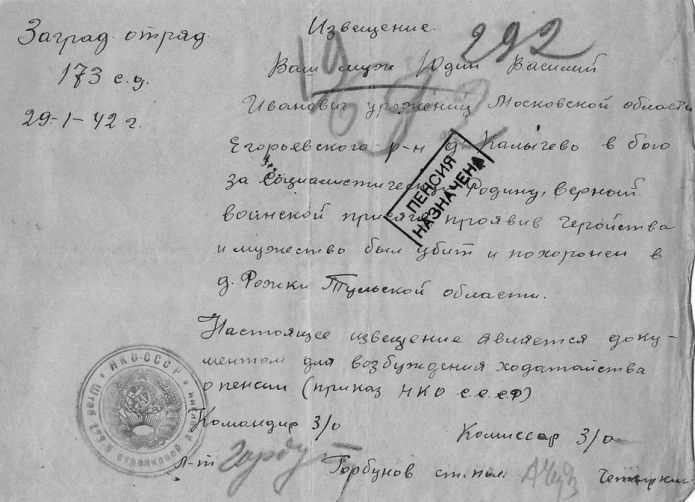 Заград. отряд.
173 с.д.
29-1-42 г.
Извещение.
292
Ваш муж Юдин Василий
Иванович уроженец Московской области
Егорьевского р-н д. Калычево в бою
за социалистическую Родину, верный
воинской присяге, проявив геройства
и мужество был убит и похоронен в
д. Рожки Тульской области.
ПЕНСИЯ
НАЗНАЧЕНА
Настоящее извещение является доку-
ментом для возбуждения ходатайства
о пенсии (приказ НКО С.С.С.Р)
НКО-СССР
Штаб 173-й стрелковой дивизии
Командир З/о
Комиссар З/о
Л-т Горбунов ст. пол